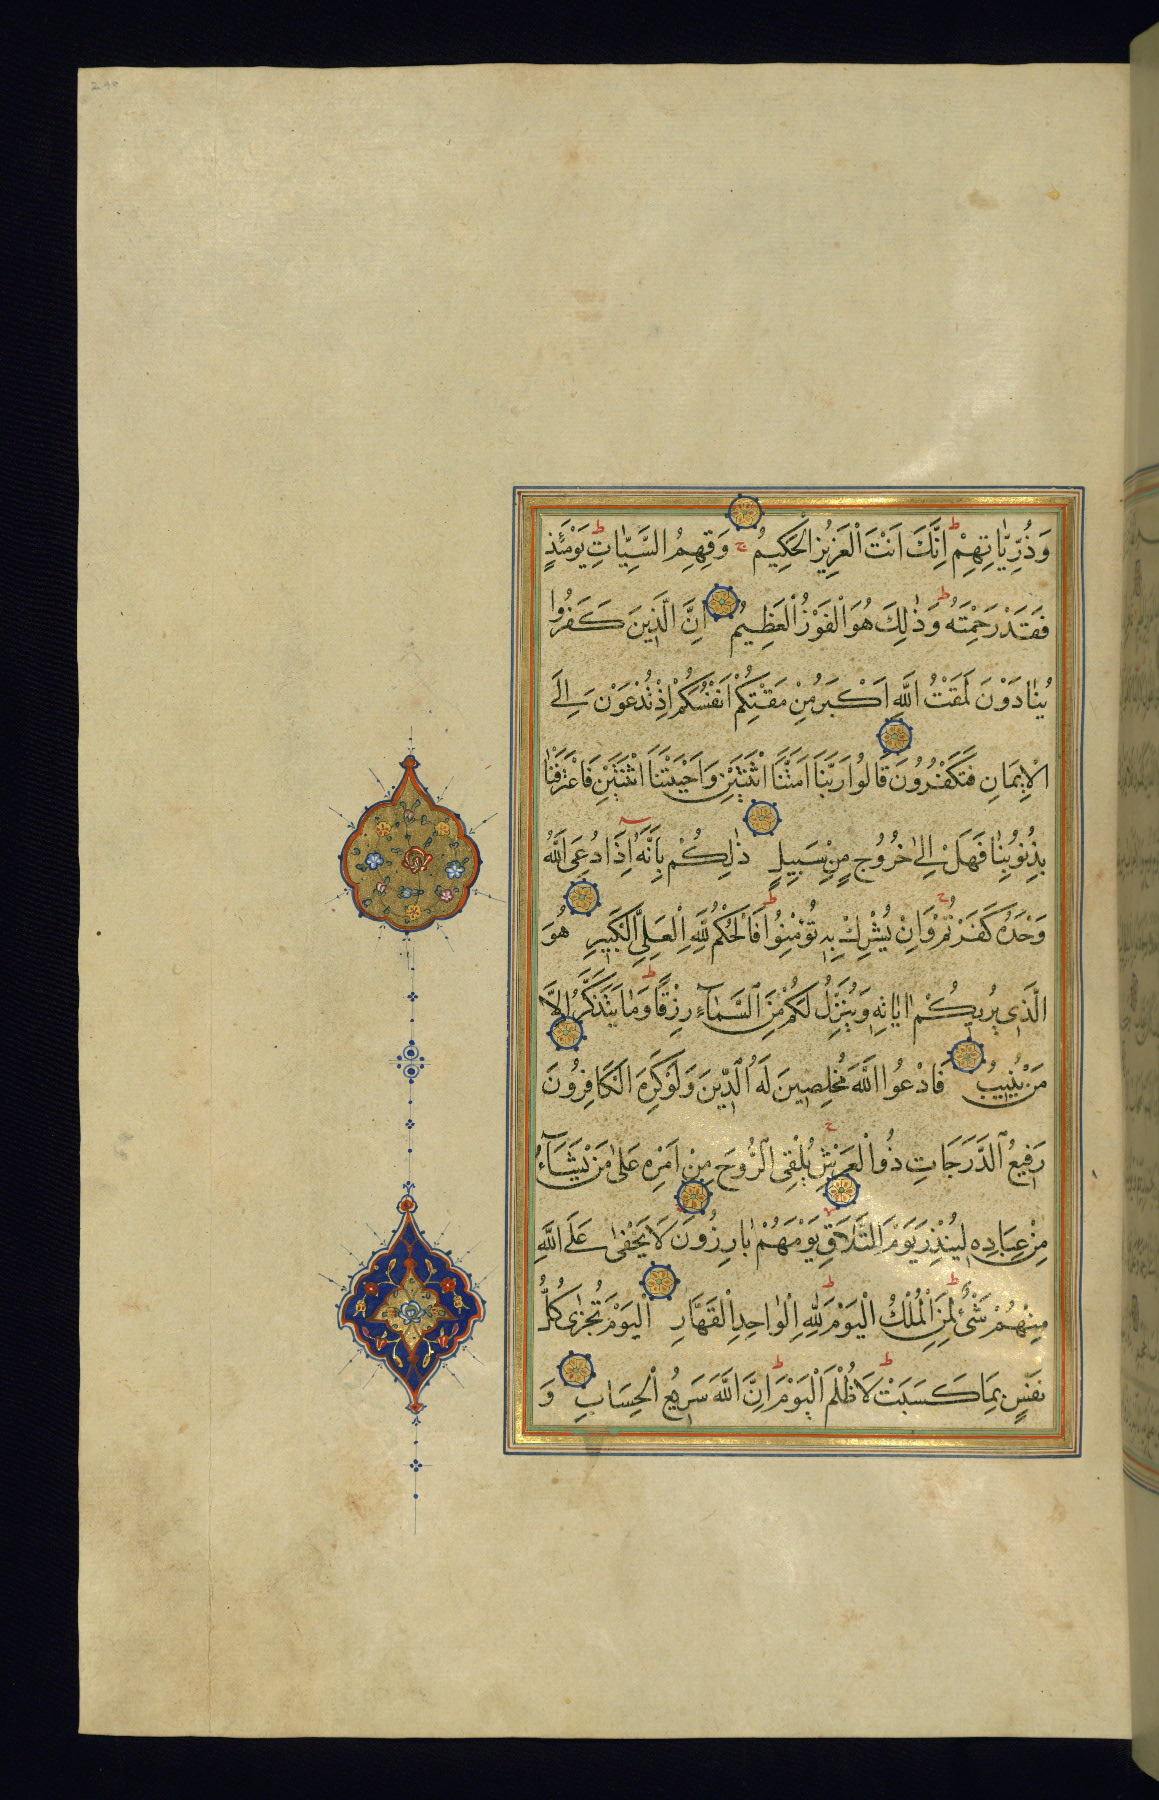 وَذُرِّيَّاتِهِمْ اِنَّكَ اَنْتَ الْعَزِيزُ الْحَكِيمُ وَقِهِمُ السَّيِّاٰتِ يَوْمَئِذٍ
فَقَدْ رَحِمْتَهُ وَذٰلِكَ هُوَ الْفَوْزُ الْعَظِيمُ اِنَّ الَّذِينَ كَفَرُوا
يُنَادَوْنَ لَمَقْتُ اللَّهِ اَكْبَرُ مِنْ مَقْتِكُمْ اَنْفُسَكُمْ اِذْ تُدْعَوْنَ اِلَى
الْاِيمَانِ فَتَكْفُرُونَ قَالُوا رَبَّنَا اَمَتَّنَا اثْنَتَيْنِ وَاَحْيَيْتَنَا اثْنَتَيْنِ فَاعْتَرَفْنَا
بِذُنُوبِنَا فَهَلْ اِلٰى خُرُوجٍ مِنْ سَبِيلٍ ذٰلِكُمْ بِاَنَّهُ اِذَا دُعِيَ اللَّهُ
وَحْدَهُ كَفَرْتُمْ وَاِنْ يُشْرَكْ بِهِ تُؤْمِنُوا فَالْحُكْمُ لِلَّهِ الْعَلِيِّ الْكَبِيرِ هُوَ
الَّذِي يُرِيكُمْ اٰيَاتِهِ وَيُنَزِّلُ لَكُمْ مِنَ السَّمَآءِ رِزْقًا وَمَا يَتَذَكَّرُ اِلَّا
مَنْ يُنِيبُ فَادْعُوا اللَّهَ مُخْلِصِينَ لَهُ الدِّينَ وَلَوْ كَرِهَ الْكَافِرُونَ
رَفِيعُ الدَّرَجَاتِ ذُو الْعَرْشِ يُلْقِي الرُّوحَ مِنْ اَمْرِهِ عَلٰى مَنْ يَشَآءُ
مِنْ عِبَادِهِ لِيُنْذِرَ يَوْمَ التَّلَاقِ يَوْمَ هُمْ بَارِزُونَ لَا يَخْفٰى عَلَى اللَّهِ
مِنْهُمْ شَيْءٌ لِمَنِ الْمُلْكُ الْيَوْمَ لِلَّهِ الْوَاحِدِ الْقَهَّارِ اَلْيَوْمَ تُجْزٰى كُلُّ
نَفْسٍ بِمَا كَسَبَتْ لَا ظُلْمَ الْيَوْمَ اِنَّ اللَّهَ سَرِيعُ الْحِسَابِ وَ